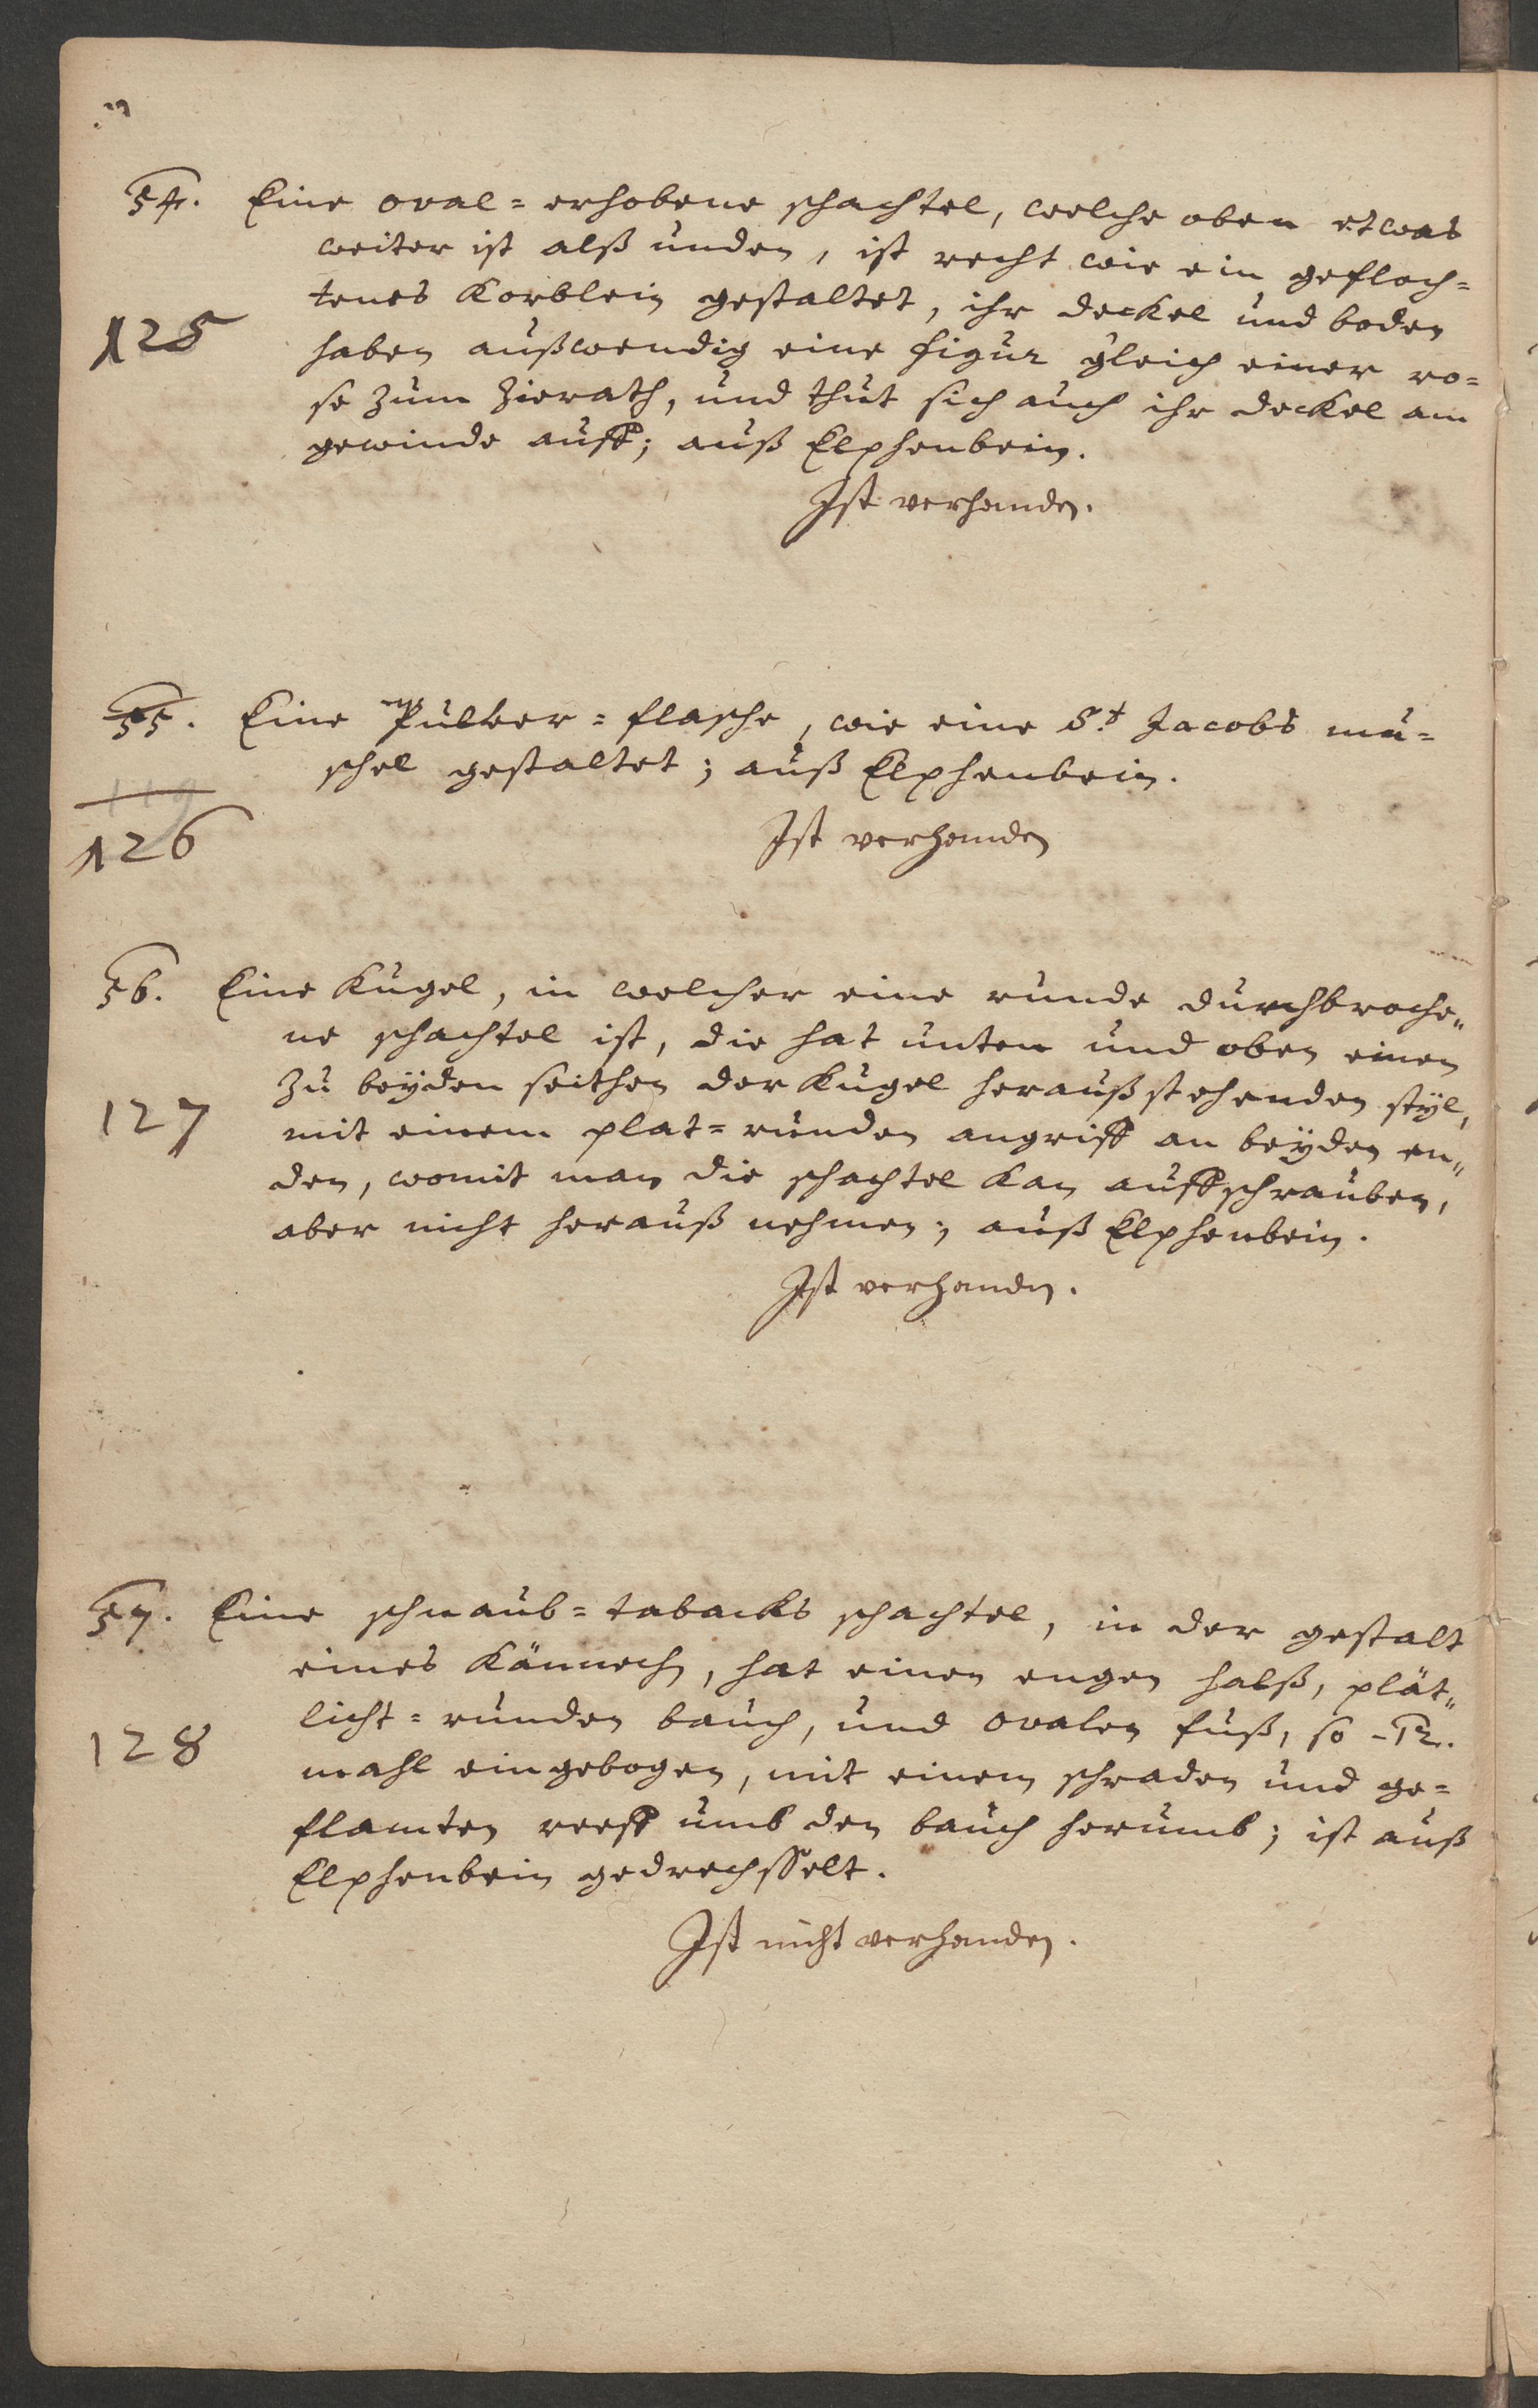 54. Eine oval=erhobene schachtel, welche oben etwas
weiter ist alß unden, ist recht wie ein gefloch=
tenes Korblein gestaltet, ihr deckel und boden
125
haben außwendig eine figur gleich einer ro=
se zum Zierath, und thut sich auch ihr deckel am
gewinde auff; auß Elphenbein.
Ist verhanden.
55. Eine Pulver=flasche, wie eine St Jacobs mu=
schel gestaltet; auß Elphenbein.
119
126
Ist verhanden
56. Eine Kugel, in welcher eine runde durchbroche„
ne schachtel ist, die hat unten und oben einen
zu beÿden seithen der Kugel heraußstehenden stÿl,
127
mit einem plat=runden angriff an beÿden en„
den, womit man die schachtel kan auffschrauben,
aber nicht herauß nehmen; auß Elphenbein.
Ist verhanden.
57. Eine schnaub=tabacks schachtel, in der gestalt
eines Kännch, hat einen engen halß, plät„
licht=runden bauch, und ovalen fuß, so -12.
128
mahl eingebogen, mit einem schraden und ge=
flamten reeff umb den bauch herumb; ist auß
Elphenbein gedrechsselt.
Ist nicht verhanden.